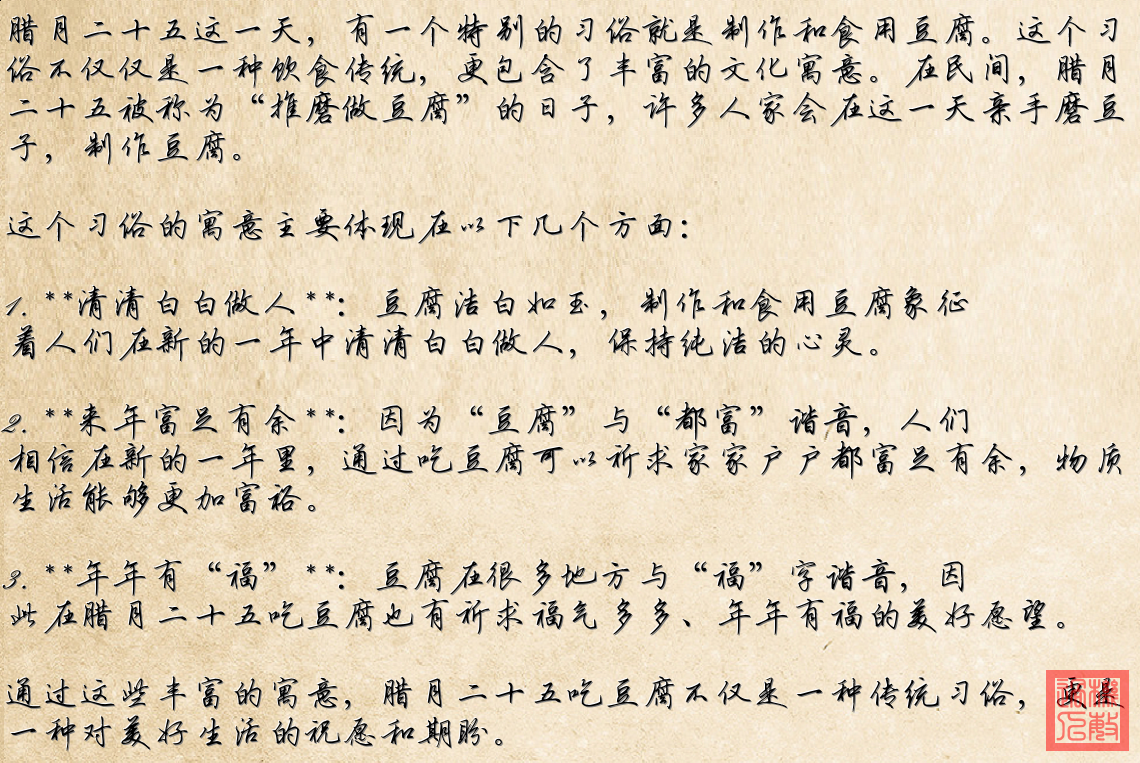 腊月二十五这一天，有一个特别的习俗就是制作和食用豆腐。这个习
俗不仅仅是一种饮食传统，更包含了丰富的文化寓意。在民间，腊月
二十五被称为“推磨做豆腐”的日子，许多人家会在这一天亲手磨豆
子，制作豆腐。
这个习俗的寓意主要体现在以下几个方面：
1. **清清白白做人**：豆腐洁白如玉，制作和食用豆腐象征
着人们在新的一年中清清白白做人，保持纯洁的心灵。
2. **来年富足有余**：因为“豆腐”与“都富”谐音，人们
相信在新的一年里，通过吃豆腐可以祈求家家户户都富足有余，物质
生活能够更加富裕。
3. **年年有“福”**：豆腐在很多地方与“福”字谐音，因
此在腊月二十五吃豆腐也有祈求福气多多、年年有福的美好愿望。
通过这些丰富的寓意，腊月二十五吃豆腐不仅是一种传统习俗，更是
一种对美好生活的祝愿和期盼。